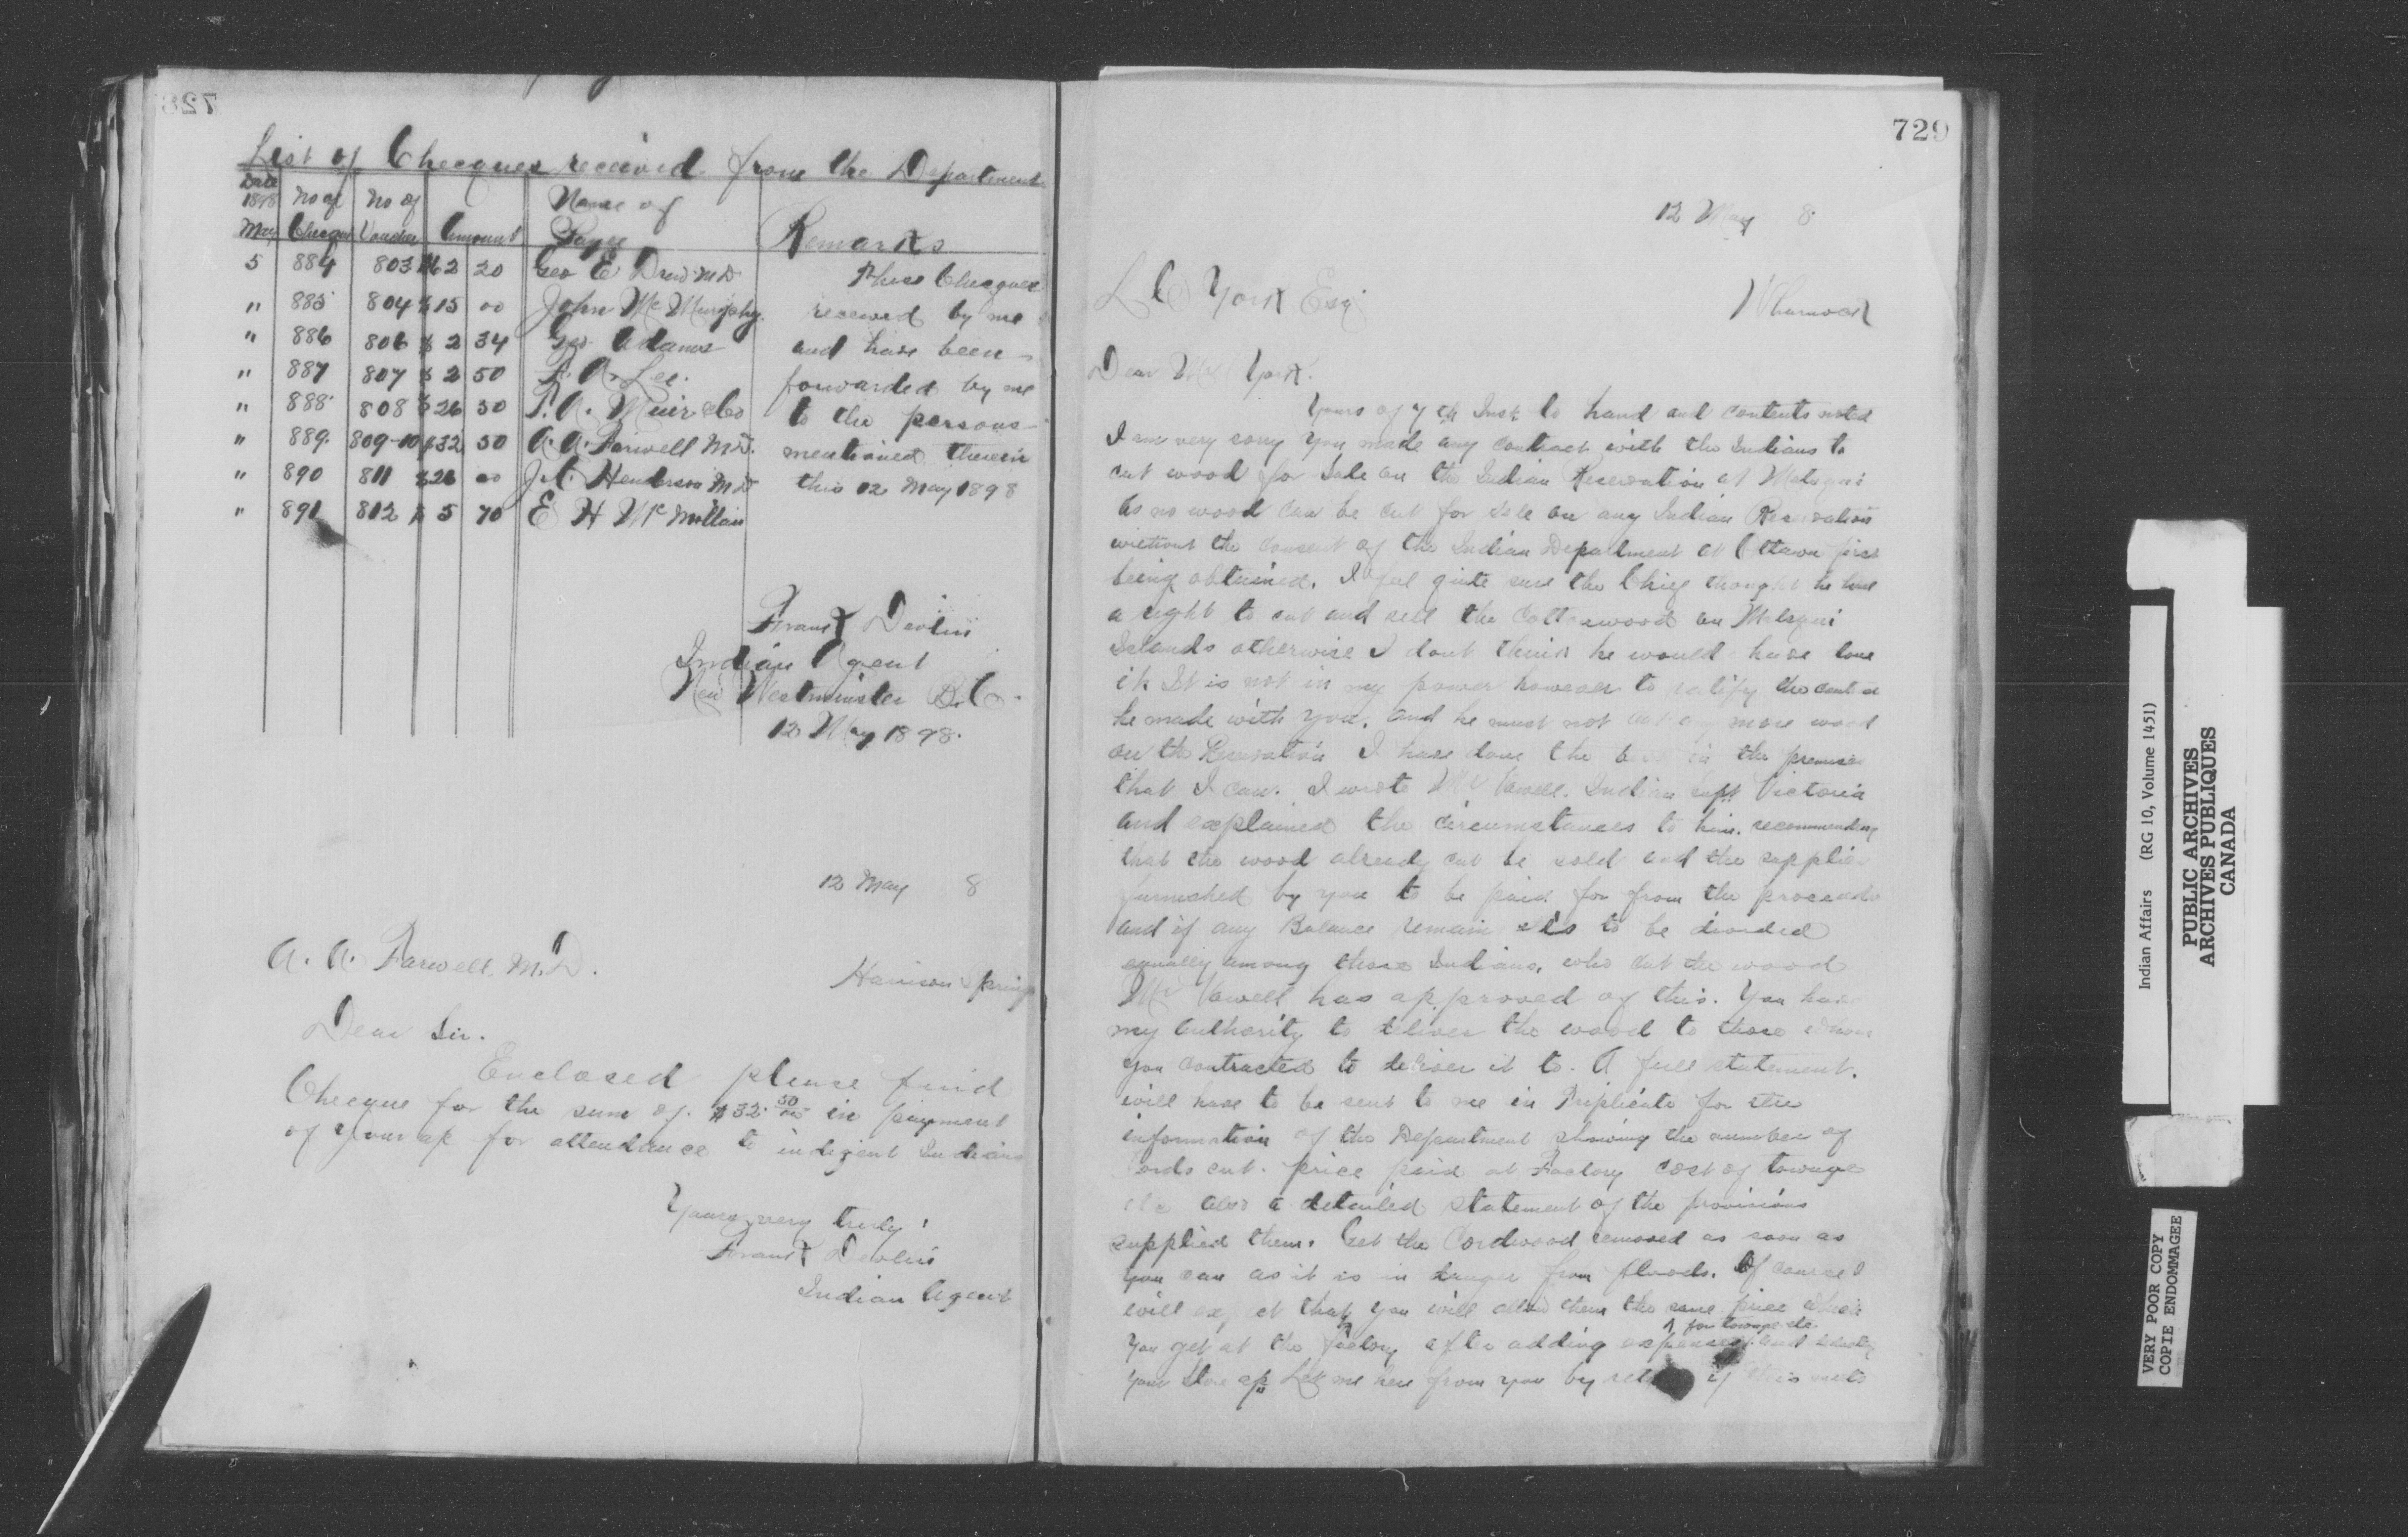 728
List of Checques received from the Department
Date 1898 May | No of Checque | No of Voucher | Amount | Name of Payee | Remarks
5 884 803 $62 20 Geo E Drew M.D
" 885 804 $15 00 John Mc Murphy.
" 886 806 $2 34 Geo. Adams
" 887 807 $2 50 A. Lee.
" 888 808 $26 30 Muir & Co
" 889. 809-10 $32 50 A. A. Farwell M.D.
" 890 811 $26 00 Henderson M D
" 891 812 $5 70 E H Mc Millan
These Checques
received by me
and have been
forwarded by me
to the persons
mentioned therein
this 12 May 1898
Frank Devlin
Indian Agent
New Westminster B.C.
12 May 1898.
12 May 8
A. A. Farwell. M.D.
Harrison Springs
Dear Sir.
Enclosed please find
Checque for the sum of $32. 50/100 in payment
of your a/c for attendance to indigent Indians
Yours very truly
Frank Devlin
Indian Agent
729
12 May 8
L C York Esq
Wharnock
Dear Mr York.
Yours of 7th Inst to hand and contents noted
I am very sorry you made any contract with the Indians to
cut wood for Sale on the Indian Reservation at Matsqui
as no wood can be cut for sale on any Indian Reservation
without the consent of the Indian Department at Ottawa first
being obtained. I feel quite sure the Chief thought he had
a right to cut and sell the Cottonwood on Matsqui
Islands otherwise I dont think he would have done
it. It is not in my power however to ratify the
he made with you. and he must not cut any more wood
on the Reservation I have done the best in the premises
that I can. I wrote Mr Vowell. Indian Supt Victoria
and explained the circumstances to him. recommending
that the wood already cut be sold and the supplies
furnished by you to be paid for from the proceeds
and if any Balance remain its to be divided
equally among those Indians. who cut the wood
Mr Vowell has approved of this. You have
my authority to deliver the wood to those whom
you contracted to deliver it to. A full statement.
will have to be sent to me in Triplicate for the
information of the Department showing the number of
Cords cut. price paid at Factory cost of towage
etc also a detailed statement of the provisions
supplied them. Get the Cordwood removed as soon as
you can as it is in danger from floods. Of course I
will expect that you will allow them the same price which
you get at the factory after adding expenses ^ for towage etc. and
your Store a/c Let me here from you by return if this meets
Indian Affairs (RG 10, Volume 1451)
PUBLIC ARCHIVES
ARCHIVES PUBLIQUES
CANADA
VERY POOR COPY
COPIE ENDOMMAGEE